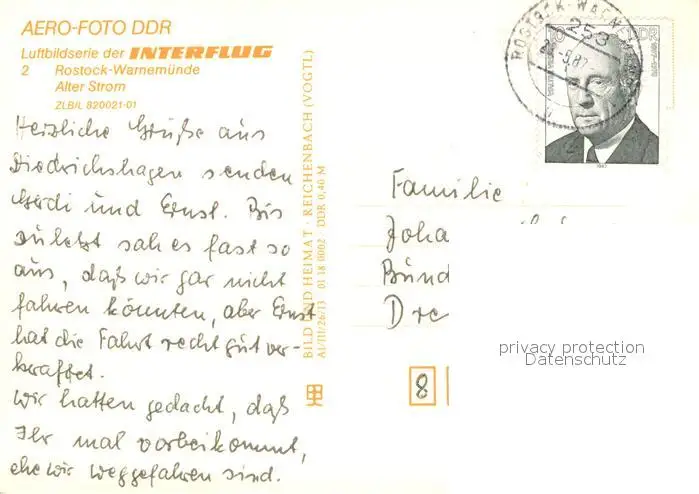 AERO-FOTO DDR
Luftbildserie der INTERFLUG
2 Rostock-Warnemünde
Alter Strom
ZLB/L 820021-01
Herzliche Grüße aus
Diedrichshagen senden
Gerdi und Ernst. Bis
zuletzt sah es fast so
aus, daß wir gar nicht
fahren könnten, aber Ernst
hat die Fahrt recht gut ver-
kraftet.
Wir hatten gedacht, daß
Ihr mal vorbeikommt,
ehe wir weggefahren sind.
BILD UND HEIMAT · REICHENBACH (VOGTL)
AI/III/26/13 01 18 0002 · DDR 0,40 M
253
DDR
1987
Familie
Joha
Bünd
Dre
8
privacy protection
Datenschutz